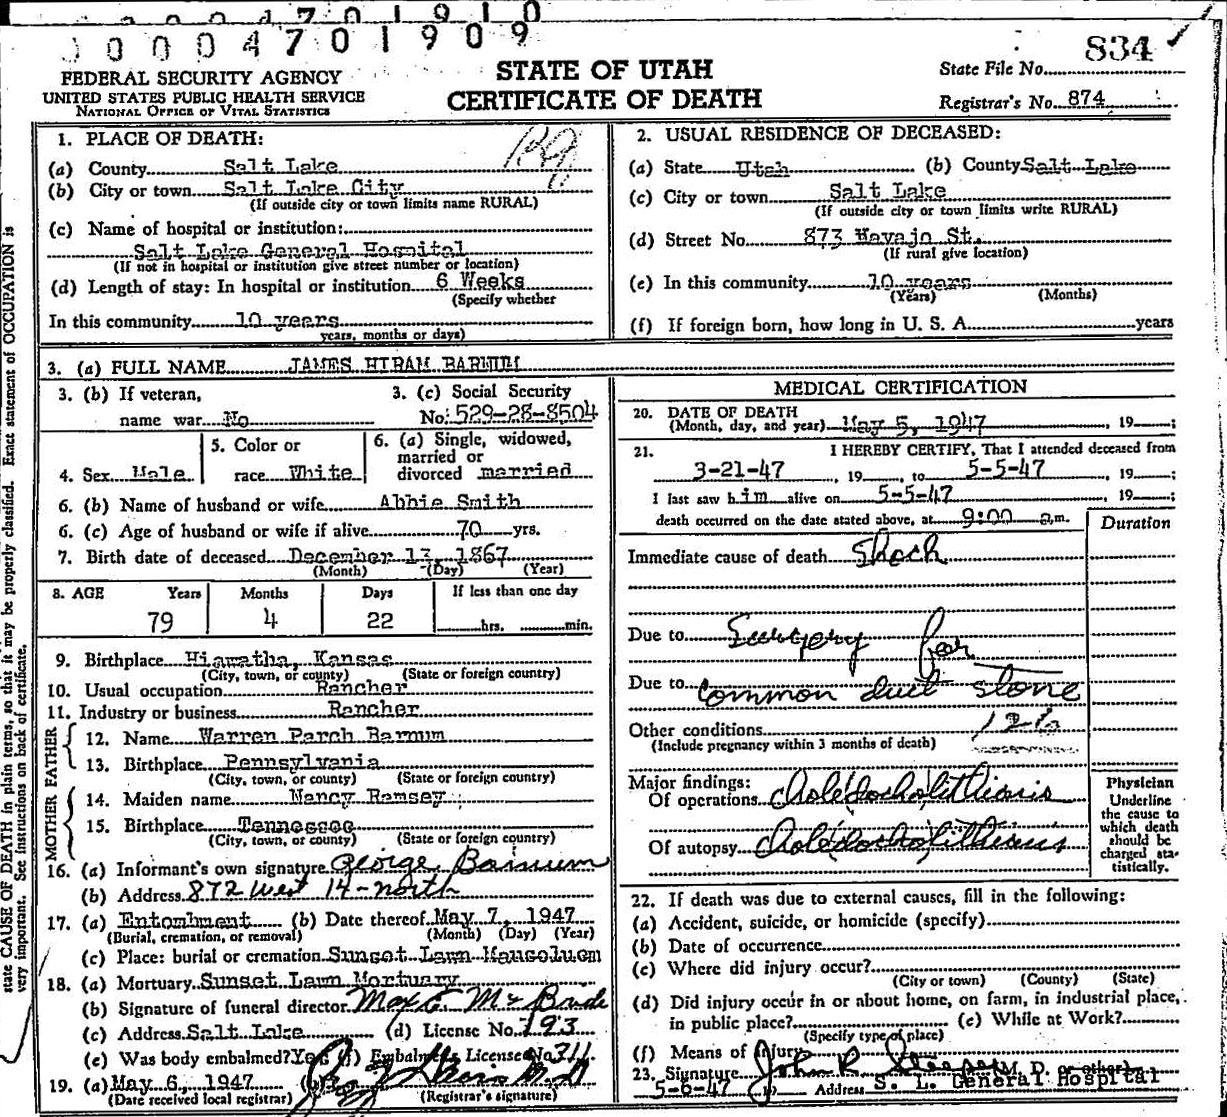 0004701910
0004701909
834
FEDERAL SECURITY AGENCY
UNITED STATES PUBLIC HEALTH SERVICE
NATIONAL OFFICE OF VITAL STATISTICS
STATE OF UTAH
CERTIFICATE OF DEATH
State File No.
Registrar's No. 874
1. PLACE OF DEATH:
(a) County Salt Lake
(b) City or town Salt Lake City
(If outside city or town limits name RURAL)
(c) Name of hospital or institution:
Salt Lake General Hospital
(If not in hospital or institution give street number or location)
(d) Length of stay: In hospital or institution 6 Weeks
(Specify whether
In this community 10 years
years, months or days)
2. USUAL RESIDENCE OF DECEASED:
(a) State Utah (b) County Salt Lake
(c) City or town Salt Lake
(If outside city or town limits write RURAL)
(d) Street No. 873 Navajo St.
(If rural give location)
(e) In this community 10 years
(Years) (Months)
(f) If foreign born, how long in U. S. A. years
3. (a) FULL NAME JAMES HIRAM BARNUM
3. (b) If veteran,
name war No
3. (c) Social Security
No. 529-28-8504
4. Sex Male
5. Color or
race White
6. (a) Single, widowed,
married or
divorced married
6. (b) Name of husband or wife Abbie Smith
6. (c) Age of husband or wife if alive 70 yrs.
7. Birth date of deceased December 13, 1867
(Month) (Day) (Year)
8. AGE Years Months Days If less than one day
79 4 22 hrs. min.
9. Birthplace Hiawatha, Kansas
(City, town, or county) (State or foreign country)
10. Usual occupation Rancher
11. Industry or business Rancher
FATHER
12. Name Warren Parch Barnum
13. Birthplace Pennsylvania
(City, town, or county) (State or foreign country)
MOTHER
14. Maiden name Nancy Ramsey
15. Birthplace Tennessee
(City, town, or county) (State or foreign country)
16. (a) Informant's own signature George Barnum
(b) Address 872 West 14-north
17. (a) Entombment (b) Date thereof May 7, 1947
(Burial, cremation, or removal) (Month) (Day) (Year)
(c) Place: burial or cremation Sunset Lawn Mausoluem
18. (a) Mortuary Sunset Lawn Mortuary
(b) Signature of funeral director Max E. McBride
(c) Address Salt Lake (d) License No. 193
(e) Was body embalmed? Yes (f) Embalmer's License No. 311
19. (a) May 6, 1947 (b)
(Date received local registrar) (Registrar's signature)
MEDICAL CERTIFICATION
20. DATE OF DEATH
(Month, day, and year) May 5, 1947, 19 ;
21. I HEREBY CERTIFY, That I attended deceased from
3-21-47, 19 , to 5-5-47, 19 ;
I last saw him alive on 5-5-47, 19 ;
death occurred on the date stated above, at 9:00 a.m.
Duration
Immediate cause of death Shock
Due to Surgery for
Due to common duct stone
Other conditions
(Include pregnancy within 3 months of death)
Major findings:
Of operations Choledocholithiasis
Of autopsy Choledocholithiasis
Physician
Underline
the cause to
which death
should be
charged sta-
tistically.
22. If death was due to external causes, fill in the following:
(a) Accident, suicide, or homicide (specify)
(b) Date of occurrence
(c) Where did injury occur?
(City or town) (County) (State)
(d) Did injury occur in or about home, on farm, in industrial place,
in public place? (e) While at Work?
(Specify type of place)
(f) Means of Injury
23. Signature John R. M. D. or other)
5-6-47 Address S. L. General Hospital
state CAUSE OF DEATH in plain terms, so that it may be properly classified. Exact statement of OCCUPATION is
very important. See instructions on back of certificate.